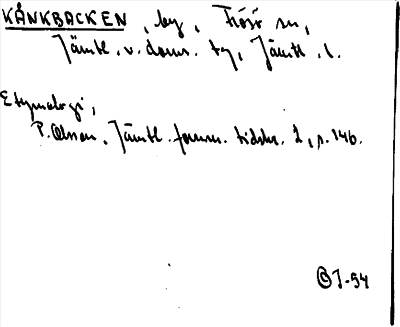 KÅNKBACKEN, by, Frösö sn,
Jämtl. v. doms. tg, Jämtl. l.
Etymologi,
P. Olsson, Jämtl. fornm. tidskr. 2, s. 146.
© J-54